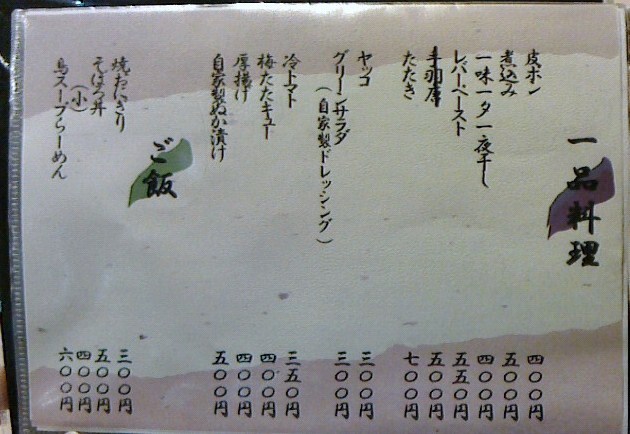 一品料理
皮ポン 四〇〇円
煮込み 五〇〇円
一味一夕一夜干し 四〇〇円
レバーペースト 五五〇円
手羽唐 五〇〇円
たたき 七〇〇円
ヤッコ 三〇〇円
グリーンサラダ(自家製ドレッシング) 三〇〇円
冷トマト 三五〇円
梅たたキュー 四〇〇円
厚揚げ 四〇〇円
自家製ぬか漬け 五〇〇円
ご飯
焼おにぎり 三〇〇円
そぼろ丼 五〇〇円
(小) 四〇〇円
鳥スープらーめん 六〇〇円